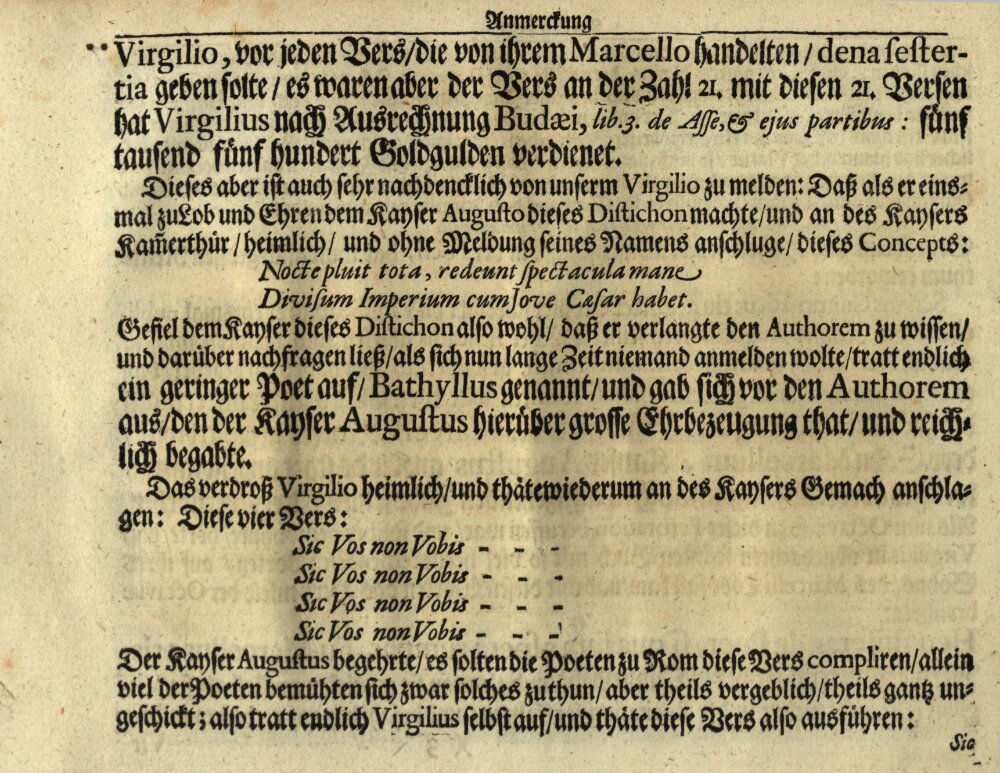 Anmerckung
Virgilio, vor jeden Vers/die von ihrem Marcello handelten/ dena sester-
tia geben solte/ es waren aber der Vers an der Zahl 21. mit diesen 21. Versen
hat Virgilius nach Ausrechnung Budæi, lib. 3. de Asse, & ejus partibus: fünf
tausend fünf hundert Goldgulden verdienet.
Dieses aber ist auch sehr nachdencklich von unserm Virgilio zu melden: Daß als er eins-
mal zu Lob und Ehren dem Kayser Augusto dieses Distichon machte/und an des Kaysers
Kam̃erthür/heimlich/ und ohne Meldung seines Namens anschluge/ dieses Concepts:
Nocte pluit tota, redeunt spectacula mane
Divisum Imperium cum Jove Cæsar habet.
Gefiel dem Kayser dieses Distichon also wohl/ daß er verlangte den Authorem zu wissen/
und darüber nachfragen ließ/als sich nun lange Zeit niemand anmelden wolte/tratt endlich
ein geringer Poet auf/ Bathyllus genannt/und gab sich vor den Authorem
aus/den der Kayser Augustus hierüber grosse Ehrbezeugung that/ und reich-
lich begabte.
Das verdroß Virgilio heimlich/und thäte wiederum an des Kaysers Gemach anschla-
gen: Diese vier Vers:
Sic Vos non Vobis - - -
Sic Vos non Vobis - - -
Sic Vos non Vobis - - -
Sic Vos non Vobis - - -
Der Kayser Augustus begehrte/es solten die Poeten zu Rom diese Vers compliren/allein
viel der Poeten bemühten sich zwar solches zu thun/ aber theils vergeblich/theils gantz un-
geschickt; also tratt endlich Virgilius selbst auf/und thäte diese Vers also ausführen:
Sic